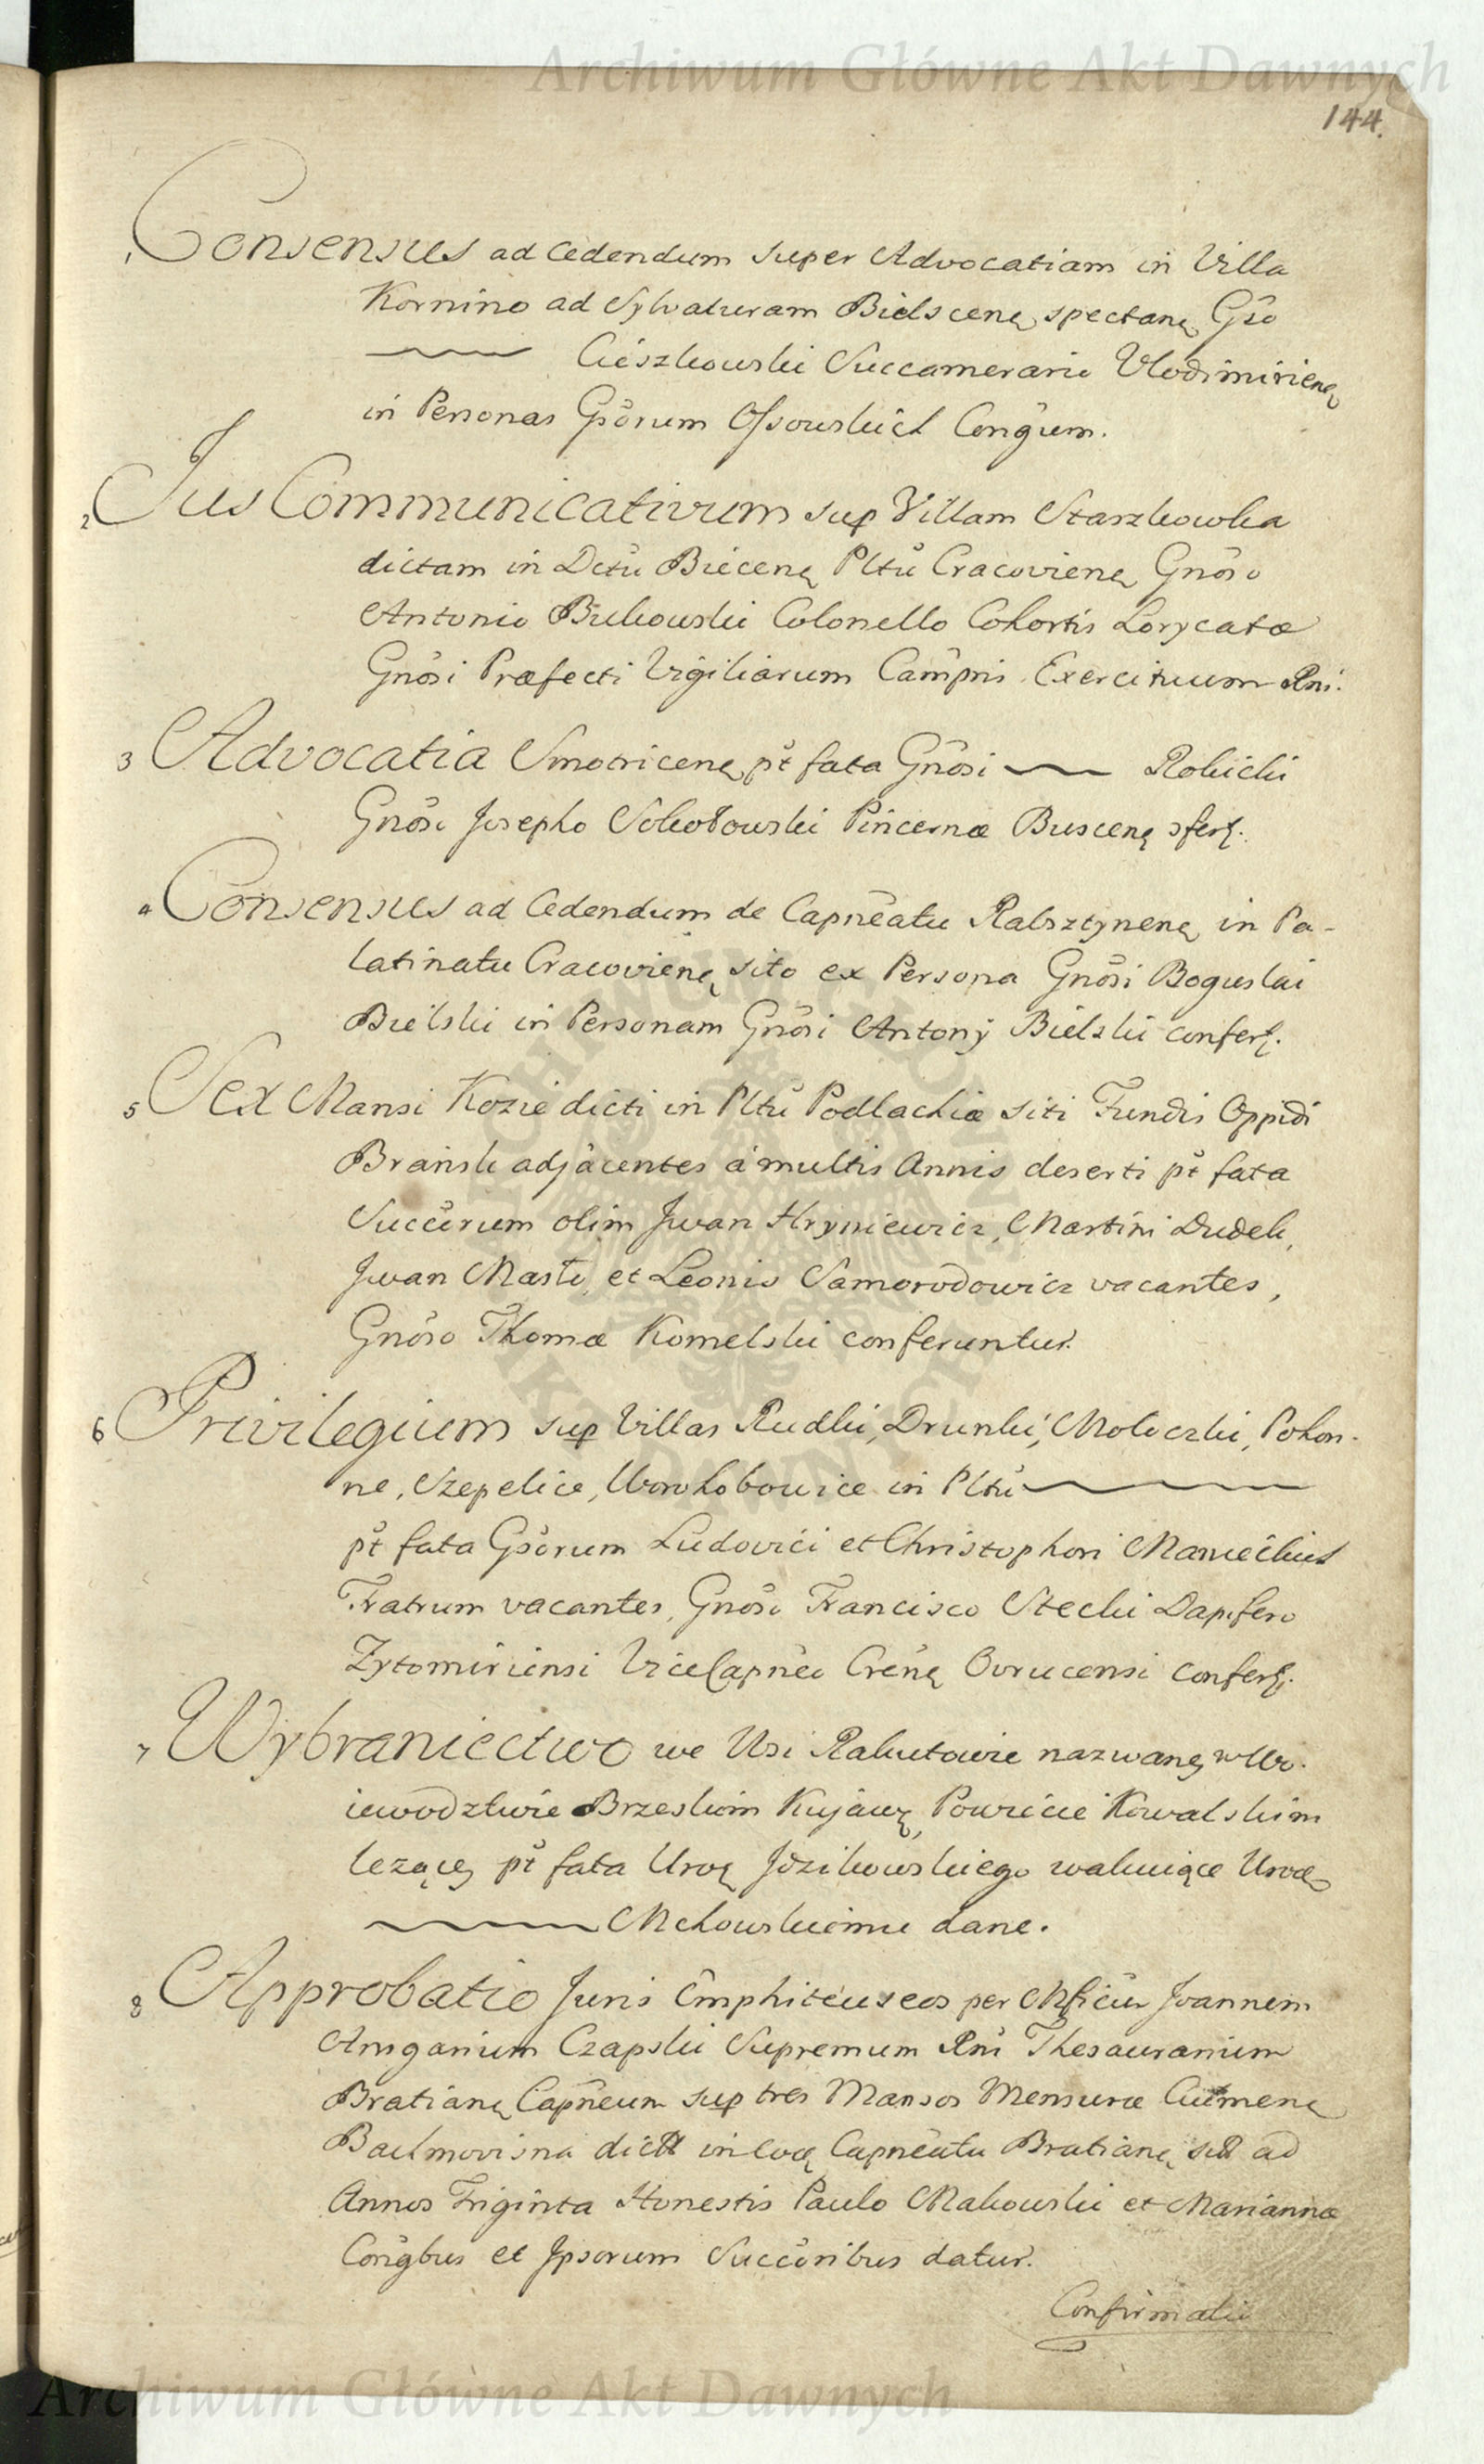 Archiwum Główne Akt Dawnych
144.
1 Consensus ad Cedendum super Advocatiam in Villa
Kornino ad Sylvaturam Bielscenę spectanę Gso
Cieszkowski Succamerario Vlodimirienę
in Personas Gsorum Ossowskich Congum.
2 Jus Communicativum sup Villam Staszkowka
dictam in Dctu Biecenę Pltu Cracovienę Gnoso
Antonio Bukowski Colonello Cohortis Lorycatæ
Gnosi Præfecti Vigiliarum Campris Exercituum Rni.
3 Advocatia Smotricenę pt fata Gnosi Rokicki
Gnoso Josepho Sokołowski Pincernæ Buscenę sferę.
4 Consensus ad Cedendum de Capneatu Rabsztynenę in Pa-
latinatu Cracovienę sito ex Persona Gnosi Boguslai
Bielski in Personam Gnosi Antonÿ Bielski conferę.
5 Sex Mansi Kozie dicti in Pltu Podlachiæ siti Fundis Oppidi
Bransk adjacentes a multis Annis deserti pt fata
Succurum olim Jwan Hryniewicz, Martini Dudek,
Jwan Masto, et Leonis Samorodowicz vacantes,
Gnoso Thomæ Komelski conferuntur.
6 Privilegium sup Villas Rudki, Drunki, Moloczki, Pohon-
ne, Szepelice, Worohobowice in Pltu
pt fata Gsorum Ludovici et Christophori Manieckich
Fratrum vacantes, Gnoso Francisco Stecki Dapifero
Zytomiriensi ViceCapneo Crenę Ovrucensi conferę.
7 Wybraniectwo we Wsi Rakutowie nazwanę w Wo-
iewodztwie Brzeskim Kujawę Powiecie Kowalskim
lezącę pt fata Uroę Jdzikowskiego wakuiące Uroę
Mchowskiemu dane.
8 Approbatio Juris Emphiteuseos per Mficum Joannem
Ansgarium Czapski Supremum Rni Thesaurarium
Bratianę Capneum sup tres Mansos Mensuræ Culmenę
dict in Capneatu Bratianę ad
Annos Triginta Honestis Paulo Makowski et Mariannæ
Congbus et Jpsorum Succoribus datur.
Confirmatio
Archiwum Główne Akt Dawnych